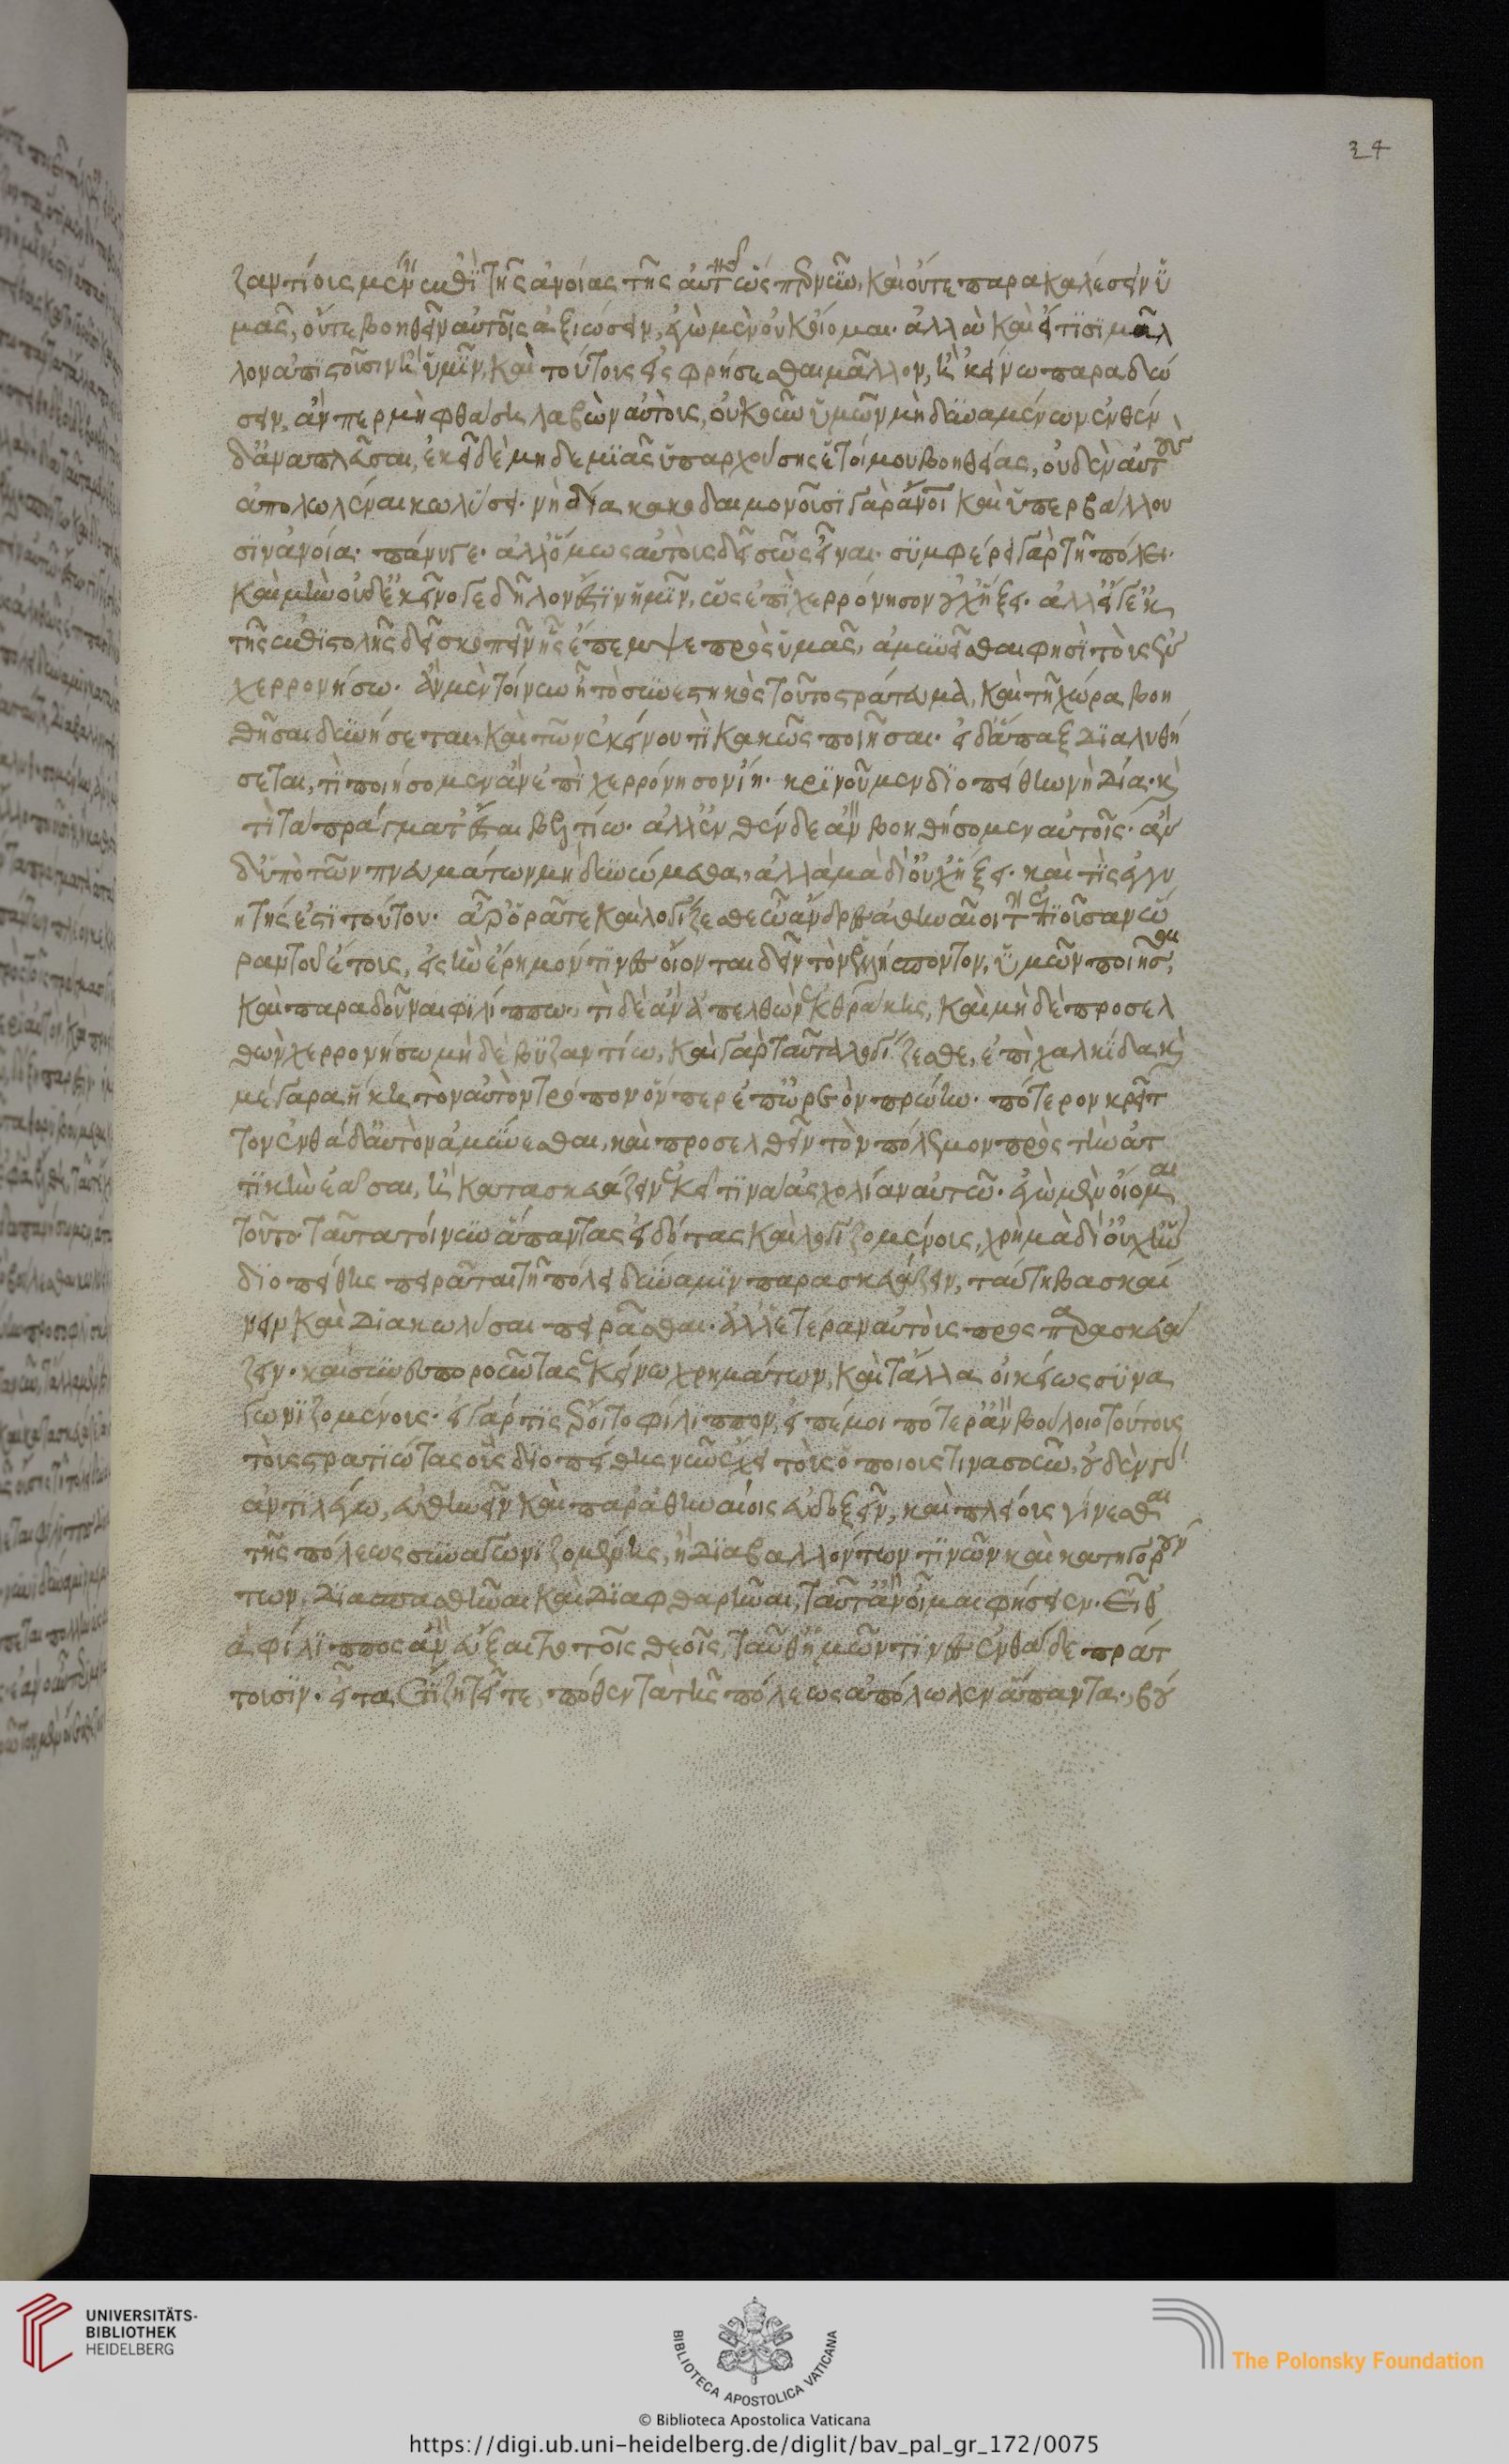 ζαντίους μενεῖν ἐπὶ τῆς ἀνοίας τῆς αὐτῆς ὥσπερ νῦν, καὶ οὔτε παρακαλέσειν ὑ
μᾶς, οὔτε βοηθεῖν αὐτοῖς ἀξιώσειν, ἐγὼ μὲν οὐκ οἴομαι. ἀλλὰ καὶ εἴ τισι μᾶλ
λον ἀπιστοῦσιν ἢ ὑμῖν, καὶ τούτους εἰσφρήσεσθαι μᾶλλον, ἢ ’κείνω παραδώ
σειν, ἄνπερ μὴ φθάση λαβὼν αὐτοὺς, οὐκοῦν ὑμῶν μὴ δυναμένων ἐνθέν
δ’ ἀναπλεῦσαι, ἐκεῖ δὲ μηδεμιᾶς ὑπαρχούσης ἑτοίμου βοηθείας, οὐδὲν αὐτοὺς
ἀπολωλέναι κωλύσει. νὴ δία κακοδαιμονοῦσι γὰρ ἄνοι καὶ ὑπερβάλλου
σιν ἀνοία. πάνυ γε. ἀλλ’ ὅμως αὐτοὺς δεῖ σῶς εἶναι. συμφέρει γὰρ τῆ πόλει.
καὶ μὴν οὐδ’ ἐκεῖνό γε δῆλον ἐστὶν ἡμῖν, ὡς ἐπὶ χερρόνησον οὐχ ἥξει. ἀλλ’ εἴ γε ἐκ
τῆς ἐπιστολῆς δεῖ σκοπεῖν ἧς ἔπεμψε πρὸς ὑμᾶς, ἀμυνεῖσθαι φησὶ τοὺς ἐν
χερρονήσω. ἂν μὲν τοίνυν ἦ τὸ συνεστηκὸς τοῦτο στράτευμα, καὶ τῆ χώρα βοη
θῆσαι δυνήσεται καὶ τῶν ἐκείνου τὶ κακῶς ποιῆσαι. εἰ δ’ ἅπαξ διαλυθή
σεται, τί ποιήσομεν ἂν ἐπὶ χερρόνησον ἴη. κρινοῦμεν διοπείθην νὴ Δία. καὶ
τί τὰ πράγματ’ ἔσται βελτίω. ἀλλ’ ἐνθένδε ἂν βοηθήσομεν αὐτοῖς. ἂν
δ’ ὑπὸ τῶν πνευμάτων μὴ δυνώμεθα, ἀλλὰ μὰ δί’ οὐχ ἥξει. καὶ τίς ἐγγυ
ητής ἐστι τούτου. ἆρ’ ὁρᾶτε καὶ λογίζεσθε ὦ ἄνδρες ἀθηναῖοι τὴν ἐπιοῦσαν ὥ
ραν τοῦ ἔτους, εἰς ἣν ἔρημόν τινες οἴονται δεῖν τὸν ἑλλήσποντον, ὑμῶν ποιῆσαι,
καὶ παραδοῦναι φιλίππω. τί δὲ ἂν ἀπελθὼν ἐκ θράκης, καὶ μὴ δὲ προσελ
θὼν χερρονήσω μὴ δὲ βυζαντίω, καὶ γὰρ ταῦτα λογίζεσθε, ἐπὶ χαλκίδα καὶ
μέγαρα ἥκη τὸν αὐτὸν τρόπον ὅνπερ ἐπ’ ὠρεὸν πρώην. πότερον κρεῖτ
τον ἐνθάδ’ αὐτὸν ἀμύνεσθαι, καὶ προσελθεῖν τὸν πόλεμον πρὸς τὴν ἀτ
τικὴν ἐᾶσαι, ἢ κατασκευάζειν ἐκεῖ τινὰ ἀσχολίαν αὐτῶ. ἐγὼ μὲν οἴομαι
τοῦτο. ταῦτα τοίνυν ἅπαντας εἰδότας καὶ λογιζομένους, χρὴ μὰ δί’ οὐχ ἣν
διοπείθης πειρᾶται τῆ πόλει δύναμιν παρασκευάζειν, ταύτη βασκαί
νειν καὶ διακωλύσαι πειρᾶσθαι. ἀλλ’ ἑτέραν αὐτοὺς προσπαρασκευά
ζειν. καὶ συνευποροῦντας ἐκείνω χρημάτων, καὶ τἄλλα οἰκείως συνα
γωνιζομένους. εἰ γάρ τις ἔροιτο φίλιππον, εἰπέ μοι πότερ’ ἂν βούλοιο τούτους
τοὺς στρατιώτας οὓς διοπείθης νῦν ἔχει τοὺς ὁποίους τινασοῦν, οὐδὲν γὰρ
ἀντιλέγω, εὐθηνεῖν καὶ παρ’ ἀθηναίοις εὐδοξεῖν, καὶ πλείους γίνεσθαι
τῆς πόλεως συναγωνιζομένης, ἢ διαβαλλόντων τινῶν καὶ κατηγορούν
των, διασπασθῆναι καὶ διαφθαρῆναι, ταῦτ’ ἂν οἶμαι φήσειεν. εἶθ’
ἃ φίλιππος ἂν εὔξαιτο τοῖς θεοῖς, ταῦθ’ ἡμῶν τινες ἐνθάδε πράτ
τουσιν. εἶτα ἔτι ζητεῖτε, πόθεν τὰ τῆς πόλεως ἀπόλωλεν ἅπαντα. βού
24
UNIVERSITÄTS-
BIBLIOTHEK
HEIDELBERG
BIBLIOTECA APOSTOLICA VATICANA
The Polonsky Foundation
© Biblioteca Apostolica Vaticana
https://digi.ub.uni-heidelberg.de/diglit/bav_pal_gr_172/0075